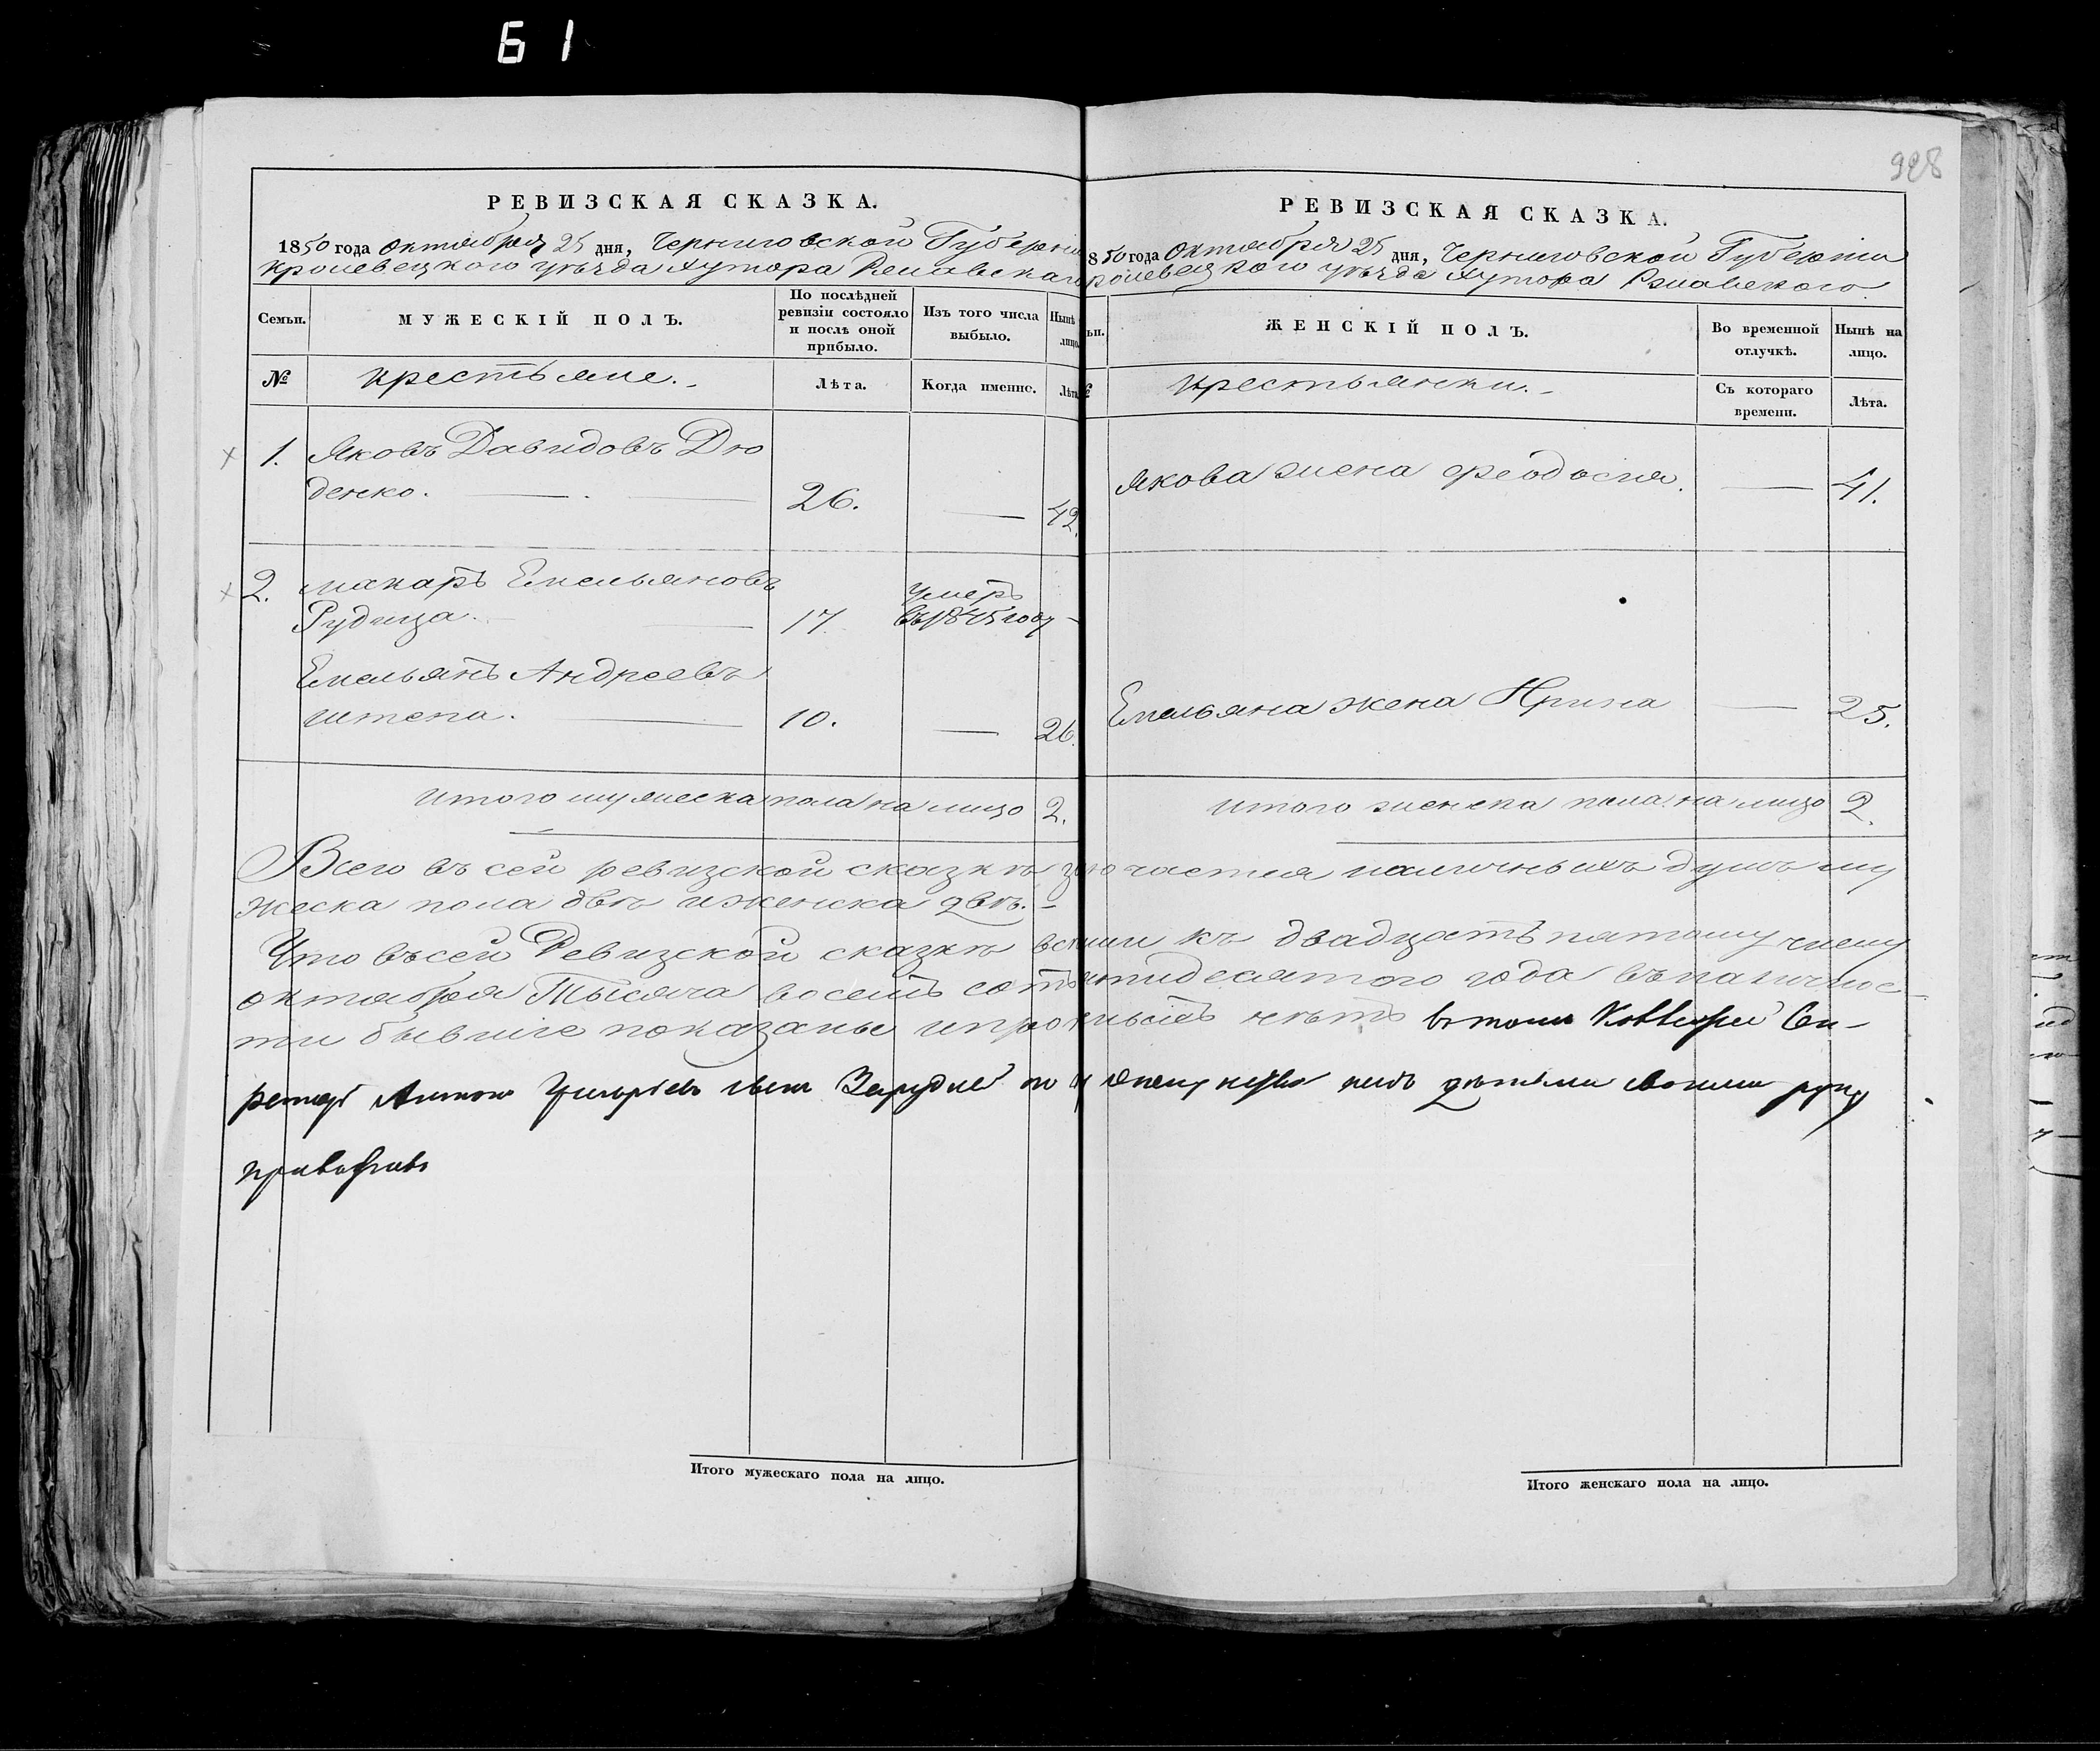 61
928
РЕВИЗСКАЯ СКАЗКА.
1850 года октября 25 дня, Черниговской Губерніи
Кролевецкого уѣзда Хутора
Семьи.
МУЖЕСКІЙ ПОЛЪ.
По послѣдней ревизіи состояло и послѣ оной прибыло.
Изъ того числа выбыло.
Нынѣ лицо.
№
крестьяне.
Лѣта.
Когда именно.
Лѣта
1. Яковъ Давидовъ Дю
денко. 26. 42.
2. Макаръ Емельяновъ
17. умеръ въ 1845 году
Емельянъ Андреевъ
Штепа. 10. 26.
итого мужеска пола на лицо 2.
РЕВИЗСКАЯ СКАЗКА.
850 года Октября 25 дня, Черниговской Губерніи
ролевецкого уѣзда Хутора
ьи.
ЖЕНСКІЙ ПОЛЪ.
Во временной отлучкѣ.
Нынѣ на лицо.
крестьянки.
Съ котораго времени.
Лѣта.
Якова жена Феодосія. 41.
Емельяна жена Ирина 25.
итого женска пола на лицо 2.
Всего въ сей ревизской сказкѣ наличныхъ душъ му
жеска пола двѣ и женска двѣ.
Что въ сей Ревизской сказкѣ всѣ къ двадцать пятому числу
октября Тысяча восемь сотъ пятидесятого года въ наличнос
ти бывшіе показаны и нѣтъ въ томъ
Антонъ Григорьевъ сынъ
Итого мужескаго пола на лицо.
Итого женскаго пола на лицо.